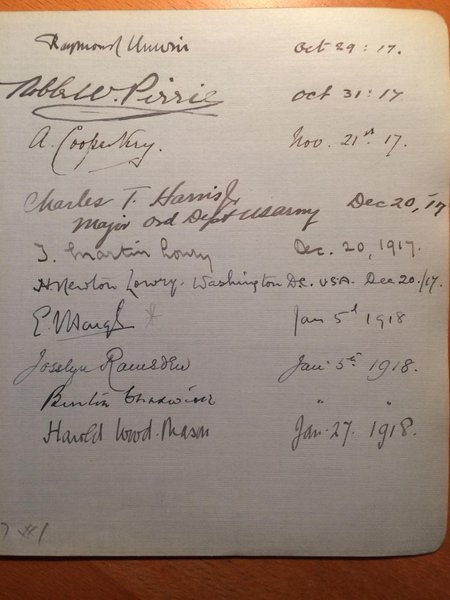 Raymond Unwin Oct 29: 17.
Noble W. Pirrie Oct 31: 17
A. Cooper Key. Nov. 21st 17.
Charles T. Harris Jr Dec 20, '17
Major Ord Dept US Army
T. Martin Lowry Dec. 20, 1917.
H Newton Lowry. Washington DC. USA. Dec 20./17.
E. Jan 5th 1918
Joselyn Ramsden Jan 5th 1918.
" "
Harold Wood. Mason Jan. 27. 1918.